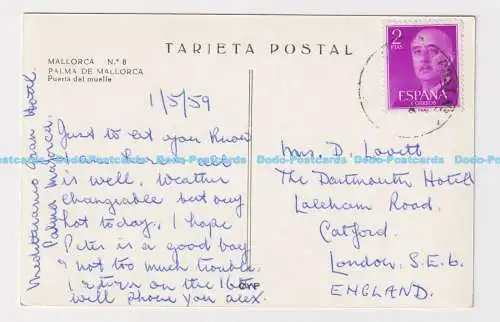 MALLORCA N.º 8
PALMA DE MALLORCA
Puerta del muelle
TARJETA POSTAL
2
PTAS
ESPAÑA
CORREOS
1/5/59
Just to let you know
I am here & all
is well. Weather
changeable but very
hot today. I hope
Peter is a good boy
& not too much trouble.
I return on the 16th
will phone you Alex.
Mediterraneo Gran Hotel.
Palma Mallorca.
Mrs. D. Lovett
The Dartmouth Hotel
Laleham Road.
Catford.
London. S.E.6.
ENGLAND.
CYF
Dodo-Postcards Dodo-Postcards Dodo-Postcards Dodo-Postcards Dodo-Postcards